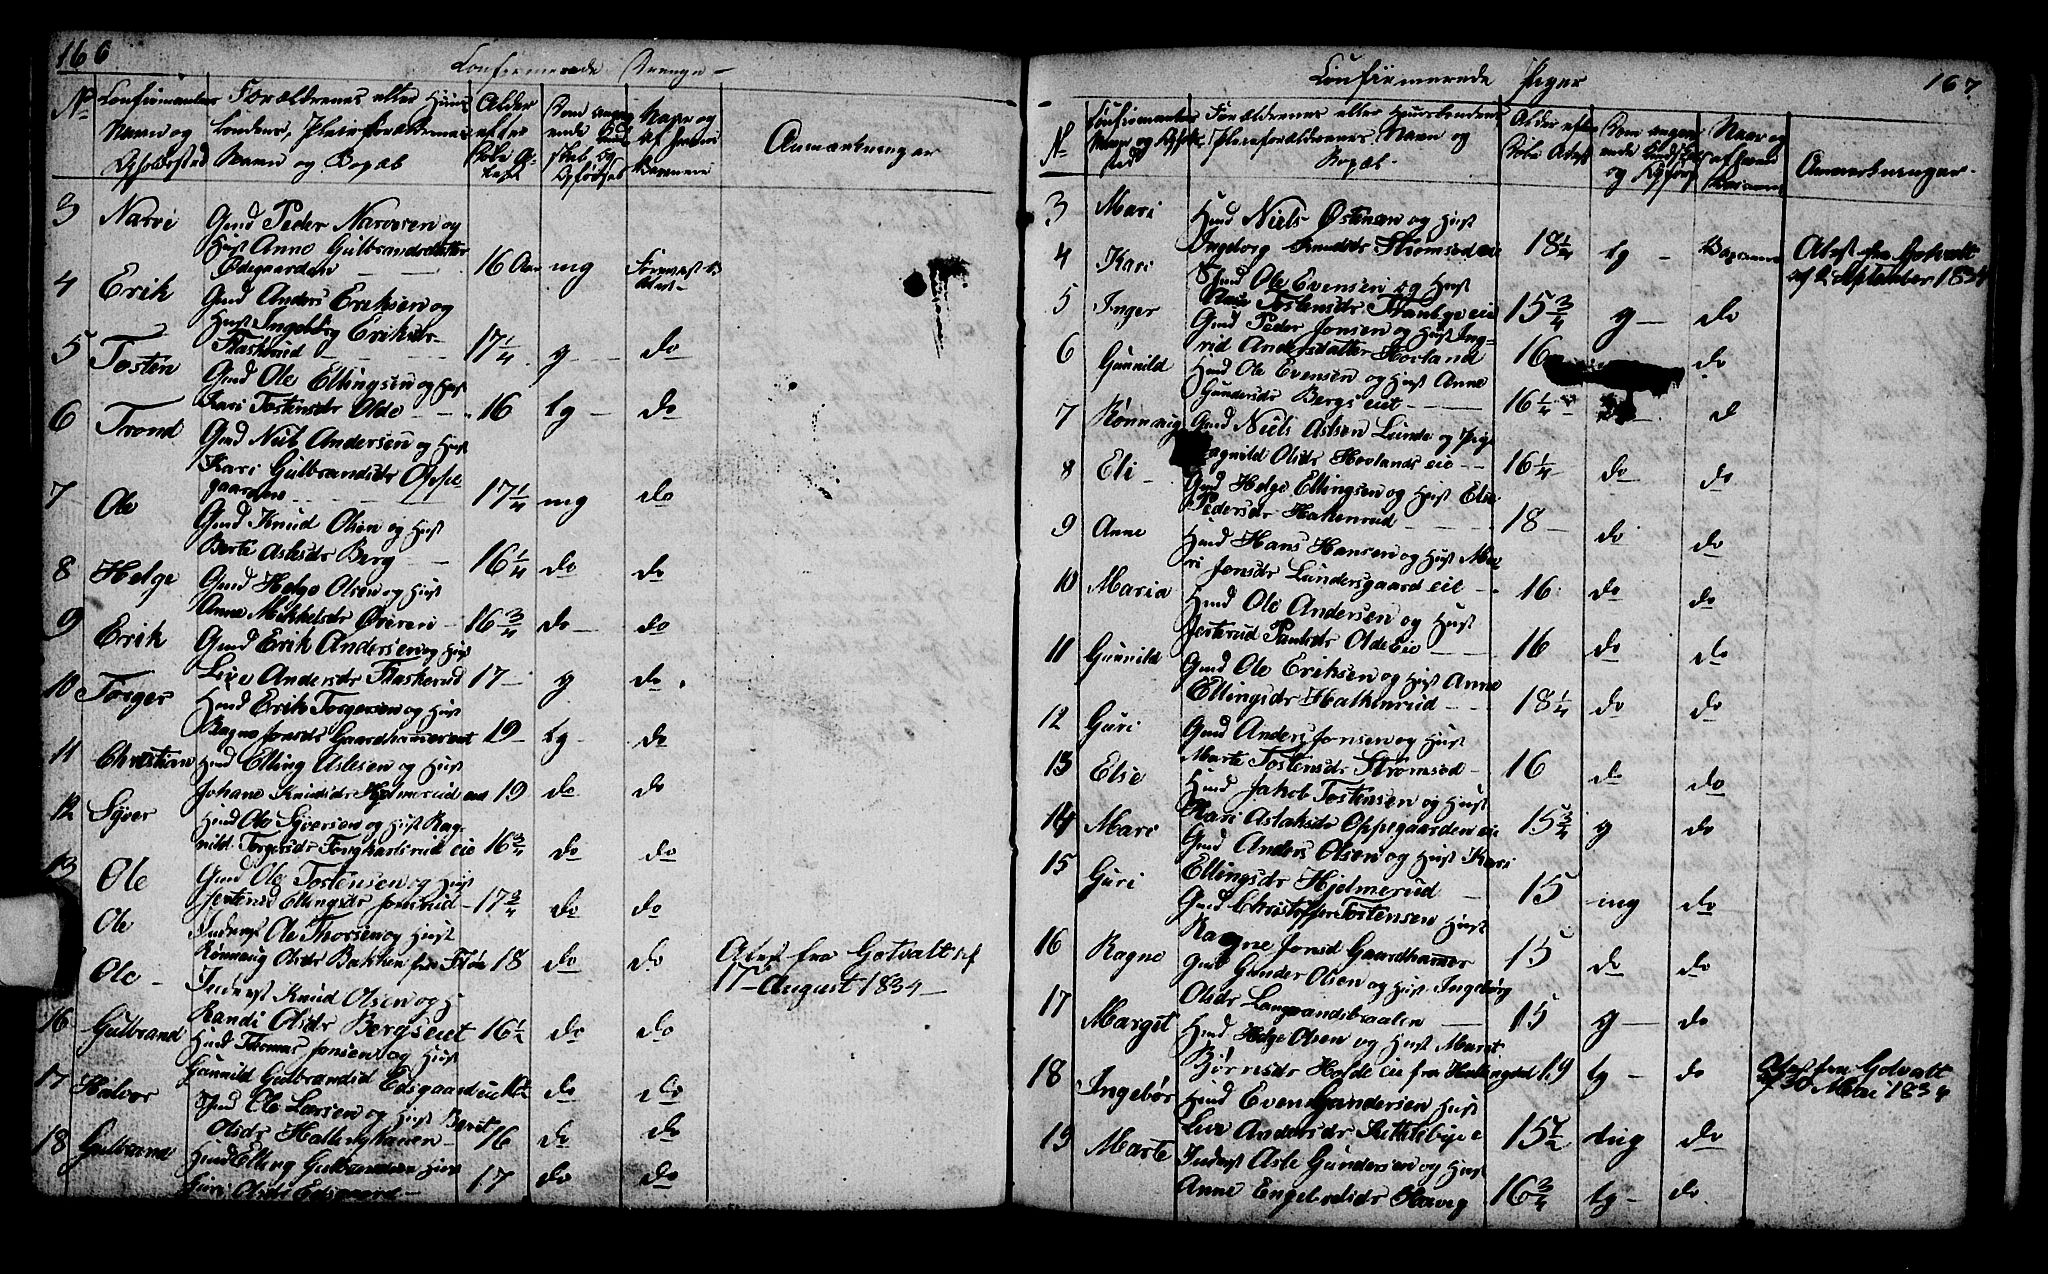 166
Confirmerede Drenge
No
Confirmanter Navn og Opholdssted
Forældrenes eller Huusbondens, Pleieforældrenes Navn og Bopæl
Alder efter Døbe Attest
Navn og
Anmærkninger
3 Narve
Gmd Peder Narvesen og
Hust Anne Gulbrandsdatter
Ødegaarden
16 Aar mg
4 Erik
Gmd Anders Eriksen og
Hust Ingebb g Eriksdr
Flaskerud
17 1/4 g do
5 Tosten
Gmd Ole Ellingsen og Hust
Kari Tostensdr Olde
16 tg do
6 Trond
Gmd Niels Andersen og Hust
Kari Gulbrandsdr Oppe-
gaarden
17 1/4 mg do
7 Ole
Gmd Knud Olsen og Hust
Berte Aslesdr Berg
16 1/4 do do
8 Helge
Gmd Helge Olsen og Hust
Anne Mikkelsdr Øveren
16 3/4 do do
9 Erik
Gmd Erik Andersen og Hust
Live Andersdr Flaskerud
17 g do
10 Torger
Hmd Erik Torgersen og Hust
Ragne Jonsdr Gaardhammereiet
19 tg do
11 Christian
Hmd Elling Aslesen og Hust
Johane Knudsdr Hjelmerud eie
19 do do
12 Syver
Hmd Ole Syversen og Hust Rag-
nild Torgersdr eie
16 3/4 do do
13 Ole
Gmd Ole Tostensen og Hust
Jertrud Ellingsdr Jonsrud
17 3/4 do do
Ole
Inderst Ole Thorsen og Hust
Rønnaug Olsdr Bakken fra Flø
18 do do
Attest fra Gotvalt af
17 August 1834
Ole
Inderst Knud Olsen og H
Randi Olsdr Bergseiet
16 1/2 do do
16 Gulbrand
Hmd Thomas Jonsen og Hust
Gunnild Gulbrandsd Edsgaard eie
do do
17 Halvor
Hmd Ole Larsen og Hust Berit
Olsdr Hallinghauen
16 do do
18 Gulbrand
Hmd Elling Gulbrandsen Hust
Guri Olsdr Edsgaard
17 do do
167
Confirmerede Piger
No
Forældrenes eller Huusbondens
Pleieforældrenes Navn og
Bopæl
Alder efter Døbe Attest
Anmærkninger
3 Mari
Hmd Niels Østensen og Hust
Ingeborg Knudsdr Strømsod eie
18 1/4 tg
Attest fra Gotvalt
af 2 September 1834
4 Kari
Hmd Ole Evensen og Hust
Tostensdr eie
15 3/4 g do
5 Inger
Gmd Peder Jonsen og Hust Ing-
rid Andersdatter Hovland
16 do
6 Gunnild
Hmd Ole Evensen og Hust Anne
Gundersdr Bergseiet
16 1/4 d
7 Rønnaug
Gmd Niels Aslsen Lunde og Pige
Ragnild Olsdr Hovlands eie
16 1/4 do do
8 Eli
Gmd Helge Ellingsen og Hust Else
Pedersdr Hakenrud
18 do do
9 Anne
Hmd Hans Hansen og Hust Ma-
ri Jonsdr Lundersgaard eie
16 do do
10 Maria
Hmd Ole Andersen og Hust
Jertrud Paulsdr Olde eie
16 do do
11 Gunnild
Gmd Ole Eriksen og Hust Anne
Ellingsdr Halkenrud
18 1/4 do do
12 Guri
Gmd Anders Jonsen og Hust
Marte Tostensdr Strømsod
16 do do
13 Else
Hmd Jakob Tostensen og Hust
Kari Aslaksdr Oppegaarden eie
15 3/4 g do
14 Mari
Gmd Anders Olsen og Hust Kari
Ellingsdr Hjelmerud
15 mg do
15 Guri
Gmd Christoffer Tostensen Hust
Ragne Jonsd Gaardhammer
15 do do
16 Ragne
Gmd Gunder Olsen og Hust Ingeborg
Olsdr Langrandsbraaten
15 g do
17 Margit
Hmd Helge Olsen og Hust Marit
Bjørnsdr Holde eie fra Hallingdal
19 tg do
Attest fra Gotvalt
af 30 Mai 1834
18 Ingebor
Hmd Even Gundersen Hust
Live Andersdr Kittelsbye e
15 1/2 tmg do
19 Marte
Inderst Asle Gundersen og Hust
Anne Engebretsdr Haavig
16 3/4 tg do